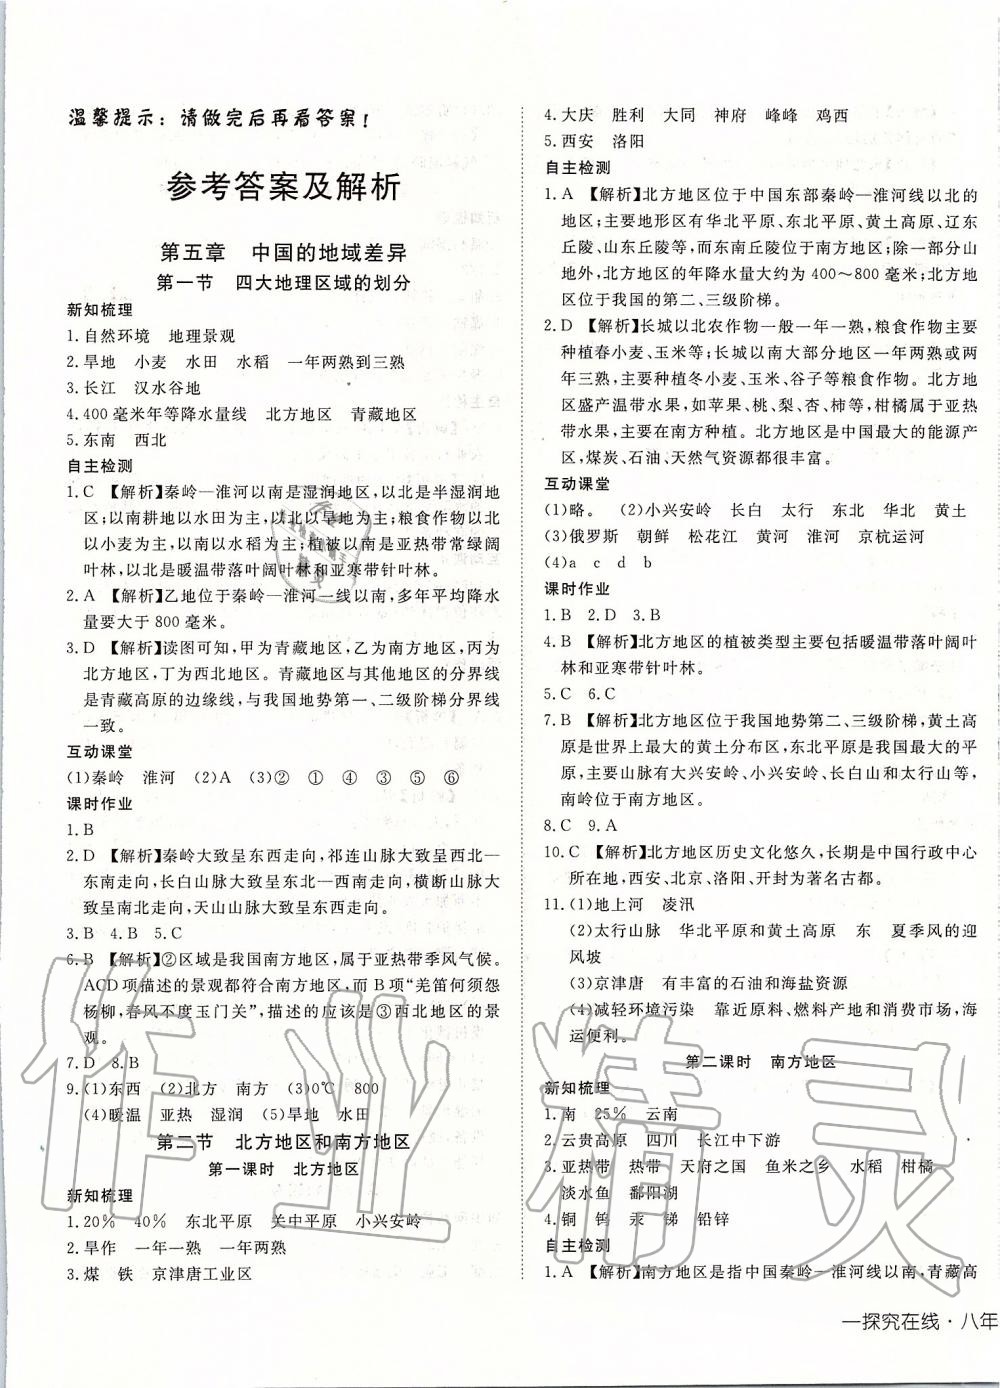 温馨提示：请做完后再看答案！
参考答案及解析
第五章　中国的地域差异
第一节　四大地理区域的划分
新知梳理
1.自然环境　地理景观
2.旱地　小麦　水田　水稻　一年两熟到三熟
3.长江　汉水谷地
4.400毫米年等降水量线　北方地区　青藏地区
5.东南　西北
自主检测
1.C　【解析】秦岭—淮河以南是湿润地区,以北是半湿润地
区;以南耕地以水田为主,以北以旱地为主;粮食作物以北
以小麦为主,以南以水稻为主;植被以南是亚热带常绿阔
叶林,以北是暖温带落叶阔叶林和亚寒带针叶林。
2.A　【解析】乙地位于秦岭—淮河一线以南,多年平均降水
量要大于800毫米。
3.D　【解析】读图可知,甲为青藏地区,乙为南方地区,丙为
北方地区,丁为西北地区。青藏地区与其他地区的分界线
是青藏高原的边缘线,与我国地势第一、二级阶梯分界线
一致。
互动课堂
(1)秦岭　淮河　(2)A　(3)②　①　④　③　⑤　⑥
课时作业
1.B
2.D　【解析】秦岭大致呈东西走向,祁连山脉大致呈西北—
东南走向,长白山脉大致呈东北—西南走向,横断山脉大
致呈南北走向,天山山脉大致呈东西走向。
3.B　4.B　5.C
6.B　【解析】②区域是我国南方地区,属于亚热带季风气候。
ACD项描述的景观都符合南方地区,而B项“羌笛何须怨
杨柳,春风不度玉门关”,描述的应该是③西北地区的景
观。
7.D　8.B
9.(1)东西　(2)北方　南方　(3)0℃　800
(4)暖温　亚热　湿润　(5)旱地　水田
第二节　北方地区和南方地区
第一课时　北方地区
新知梳理
1.20%　40%　东北平原　关中平原　小兴安岭
2.旱作　一年一熟　一年两熟
3.煤　铁　京津唐工业区
4.大庆　胜利　大同　神府　峰峰　鸡西
5.西安　洛阳
自主检测
1.A　【解析】北方地区位于中国东部秦岭—淮河线以北的
地区;主要地形区有华北平原、东北平原、黄土高原、辽东
丘陵、山东丘陵等,而东南丘陵位于南方地区;除一部分山
地外,北方地区的年降水量大约为400～800毫米;北方地
区位于我国的第二、三级阶梯。
2.D　【解析】长城以北农作物一般一年一熟,粮食作物主要
种植春小麦、玉米等;长城以南大部分地区一年两熟或两
年三熟,主要种植冬小麦、玉米、谷子等粮食作物。北方地
区盛产温带水果,如苹果、桃、梨、杏、柿等,柑橘属于亚热
带水果,主要在南方种植。北方地区是中国最大的能源产
区,煤炭、石油、天然气资源都很丰富。
互动课堂
(1)略。　(2)小兴安岭　长白　太行　东北　华北　黄土
(3)俄罗斯　朝鲜　松花江　黄河　淮河　京杭运河
(4)a　c　d　b
课时作业
1.B　2.D　3.B
4.B　【解析】北方地区的植被类型主要包括暖温带落叶阔叶
林和亚寒带针叶林。
5.C　6.C
7.B　【解析】北方地区位于我国地势第二、三级阶梯,黄土高
原是世界上最大的黄土分布区,东北平原是我国最大的平
原,主要山脉有大兴安岭、小兴安岭、长白山和太行山等,
南岭位于南方地区。
8.C　9.A
10.C　【解析】北方地区历史文化悠久,长期是中国行政中心
所在地,西安、北京、洛阳、开封为著名古都。
11.(1)地上河　凌汛
(2)太行山脉　华北平原和黄土高原　东　夏季风的迎
风坡
(3)京津唐　有丰富的石油和海盐资源
(4)减轻环境污染　靠近原料、燃料产地和消费市场,海
运便利。
第二课时　南方地区
新知梳理
1.南　25%　云南
2.云贵高原　四川　长江中下游
3.亚热带　热带　天府之国　鱼米之乡　水稻　柑橘
淡水鱼　鄱阳湖
4.铜　钨　汞　锑　铅锌
自主检测
1.A　【解析】南方地区是指中国秦岭—淮河线以南,青藏高
—探究在线·八年
作业精灵